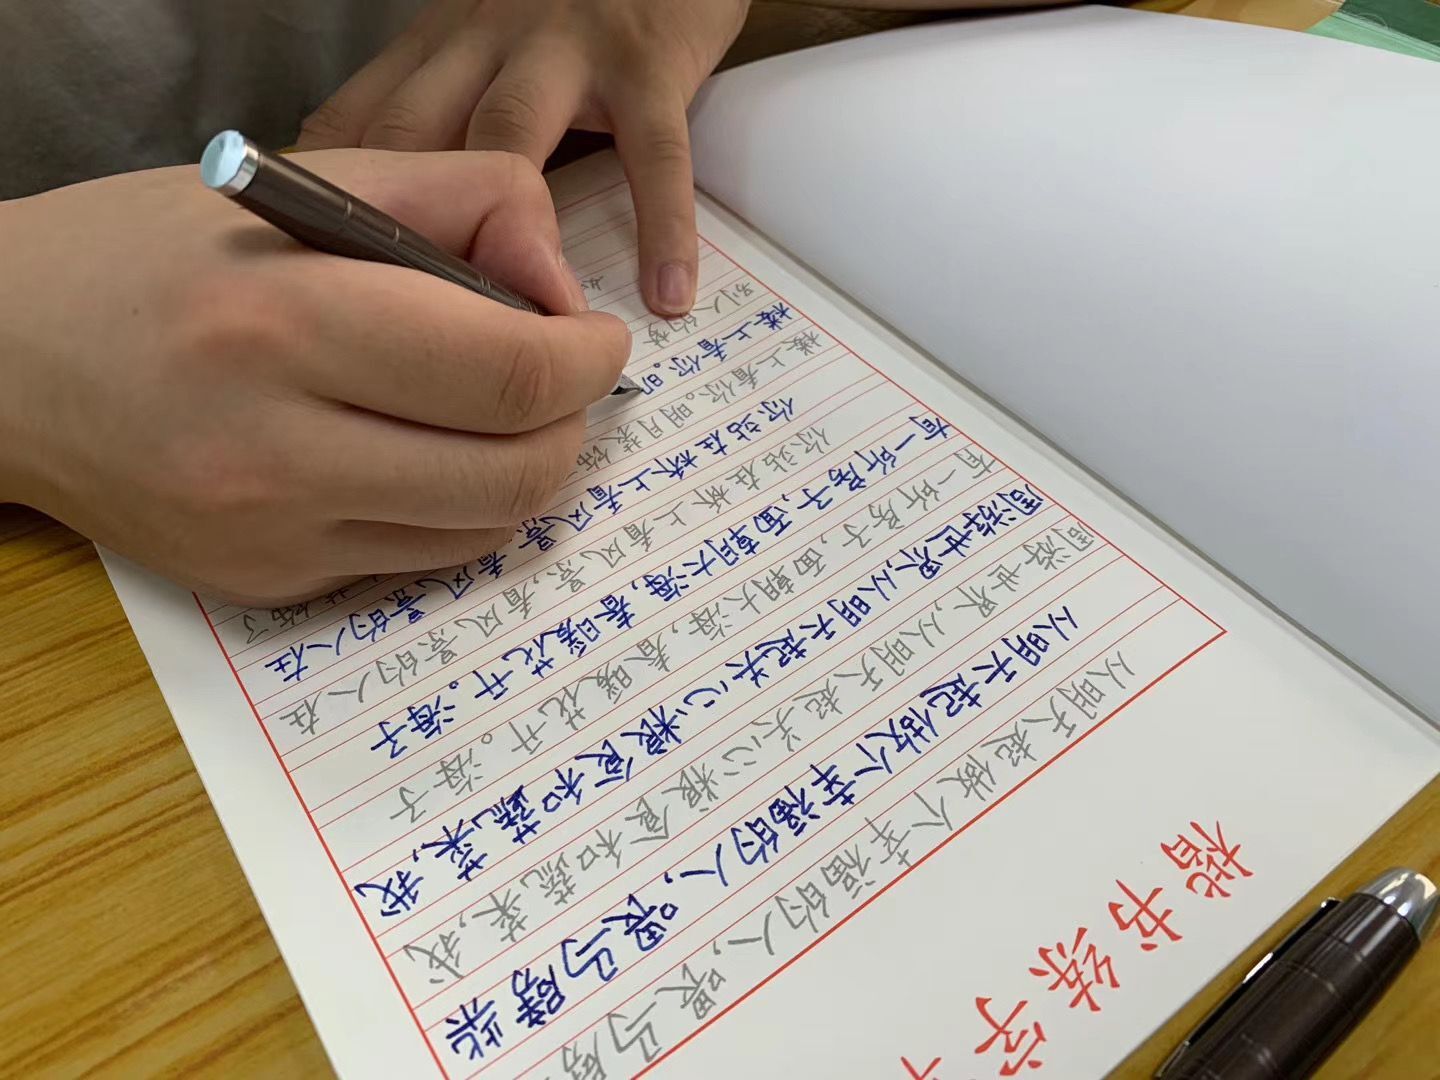 楷书练字
从明天起做个幸福的人,喂马劈
从明天起做个幸福的人,喂马劈柴
周游世界,从明天起关心粮食和蔬菜,我
周游世界,从明天起关心粮食和蔬菜,我
有一所房子,面朝大海,春暖花开。海子
有一所房子,面朝大海,春暖花开。海子
你站在桥上看风景,看风景的人在
你站在桥上看风景看风景的人在
楼上看你。明月装饰 装饰了
楼上看你。明
别人的梦